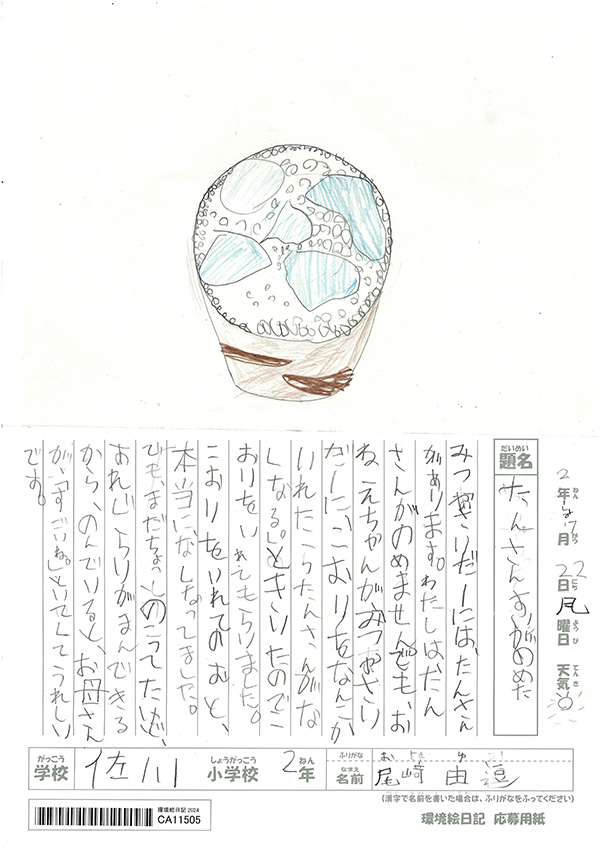 2年7月22日 曜日 天気
ねん がつ にち ようび てんき
だいめい
題名
たんさんがのめた
みつやさいだーにはたんさん
があります。わたしは、たん
さんがのめません。でも、お
ねえちゃんがみつやさい
だーに、こおりをなんこか
いれたらたんさんがな
くなる。」ときいたのでこ
おりをいれてもらいました。
こおりをいれてのむと、
本当になくなってました。
でも、まだちょっとのこってたけど、
あれくらいがまんできる
から、のんでいると、お母さん
が、「すごいね。」といってくてうれしい
です。
がっこう
学校
佐川
しょうがっこう
小学校
ねん
2年
ふりがな
なまえ
名前
尾崎 由
(漢字で名前を書いた場合は、ふりがなをふってください)
環境絵日記 応募用紙
環境絵日記 2024
CA11505